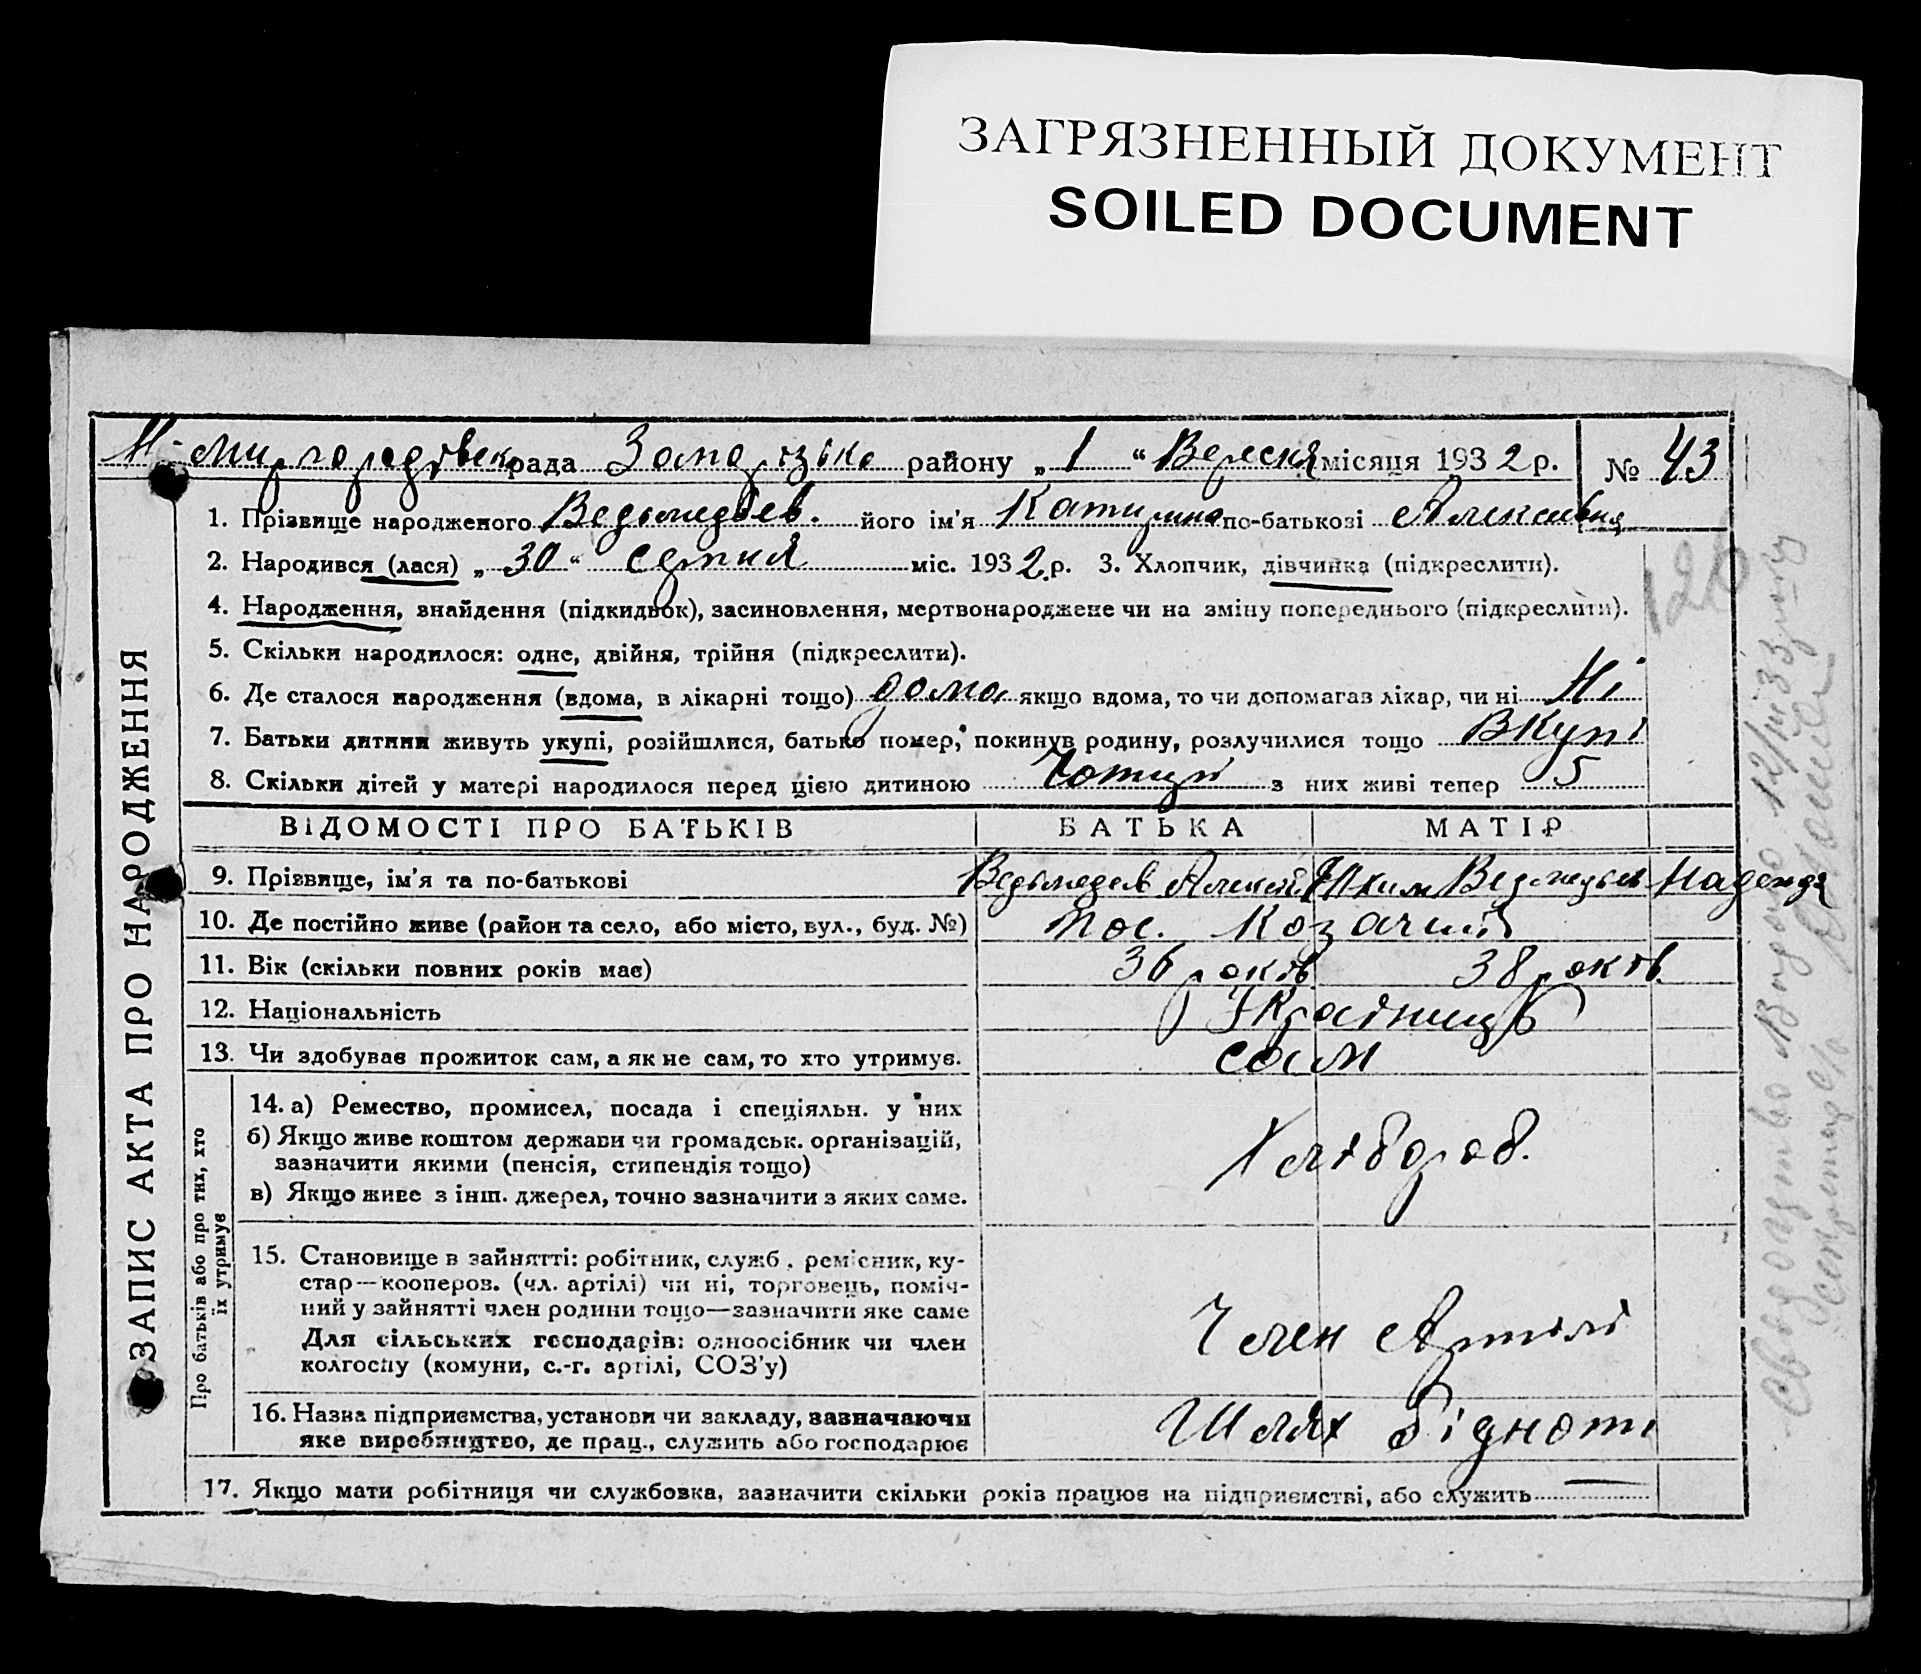 ЗАГРЯЗНЕННЫЙ ДОКУМЕНТ
SOILED DOCUMENT
Н-Миргородівск рада Запорізько району „ 1 “ Вересня місяця 1932 р. № 43
1. Прізвище народженого Ведьмедьев. його ім'я по-батькові
2. Народився (лася) „ 30 “ серпня міс. 1932 р. 3. Хлопчик, дівчинка (підкреслити).
4. Народження, внайдення (підкидьок), засиновлення, мертвонароджене чи на зміну попереднього (підкреслити).
5. Скільки народилося: одне, двійня, трійня (підкреслити).
6. Де сталося народження (вдома, в лікарні тощо) дома якщо вдома, то чи допомагав лікар, чи ні Ні
7. Батьки дитини живуть укупі, розійшлися, батько помер, покинув родину, розлучилися тощо Вкупі
8. Скільки дітей у матері народилося перед цією дитиною з них живі тепер 5
120
ЗАПИС АКТА ПРО НАРОДЖЕННЯ
ВІДОМОСТІ ПРО БАТЬКІВ БАТЬКА МАТІР
9. Прізвище, ім'я та по-батькові Ведьмедев Алексей Яким Ведмедьев Надежда
10. Де постійно живе (район та село, або місто, вул., буд. №) пос. Козачий
11. Вік (скільки повних років має) 36 років 38 років
12. Національність Українців
13. Чи здобуває прожиток сам, а як не сам, то хто утримує. сам
Про батьків або про тих, хто
їх утримує
14. а) Ремество, промисел, посада і спеціяльн. у них
б) Якщо живе коштом держави чи громадськ. організацій,
зазначити якими (пенсія, стипендія тощо)
в) Якщо живе з інш. джерел, точно зазначити з яких саме.
Хлібороб.
15. Становище в зайнятті: робітник, служб., ремісник, ку-
стар—кооперов. (чл. артілі) чи ні, торговець, поміч-
ний у зайнятті член родини тощо—зазначити яке саме
Для сільських господарів: одноосібник чи член
колгоспу (комуни, с.-г. артілі, СОЗ'у)
Член Артілі
16. Назва підприємства, установи чи закладу, зазначаючи
яке виробництво, де прац., служить або господарює
Шлях бідноти
17. Якщо мати робітниця чи службовка, зазначити скільки років працює на підприємстві, або служить —